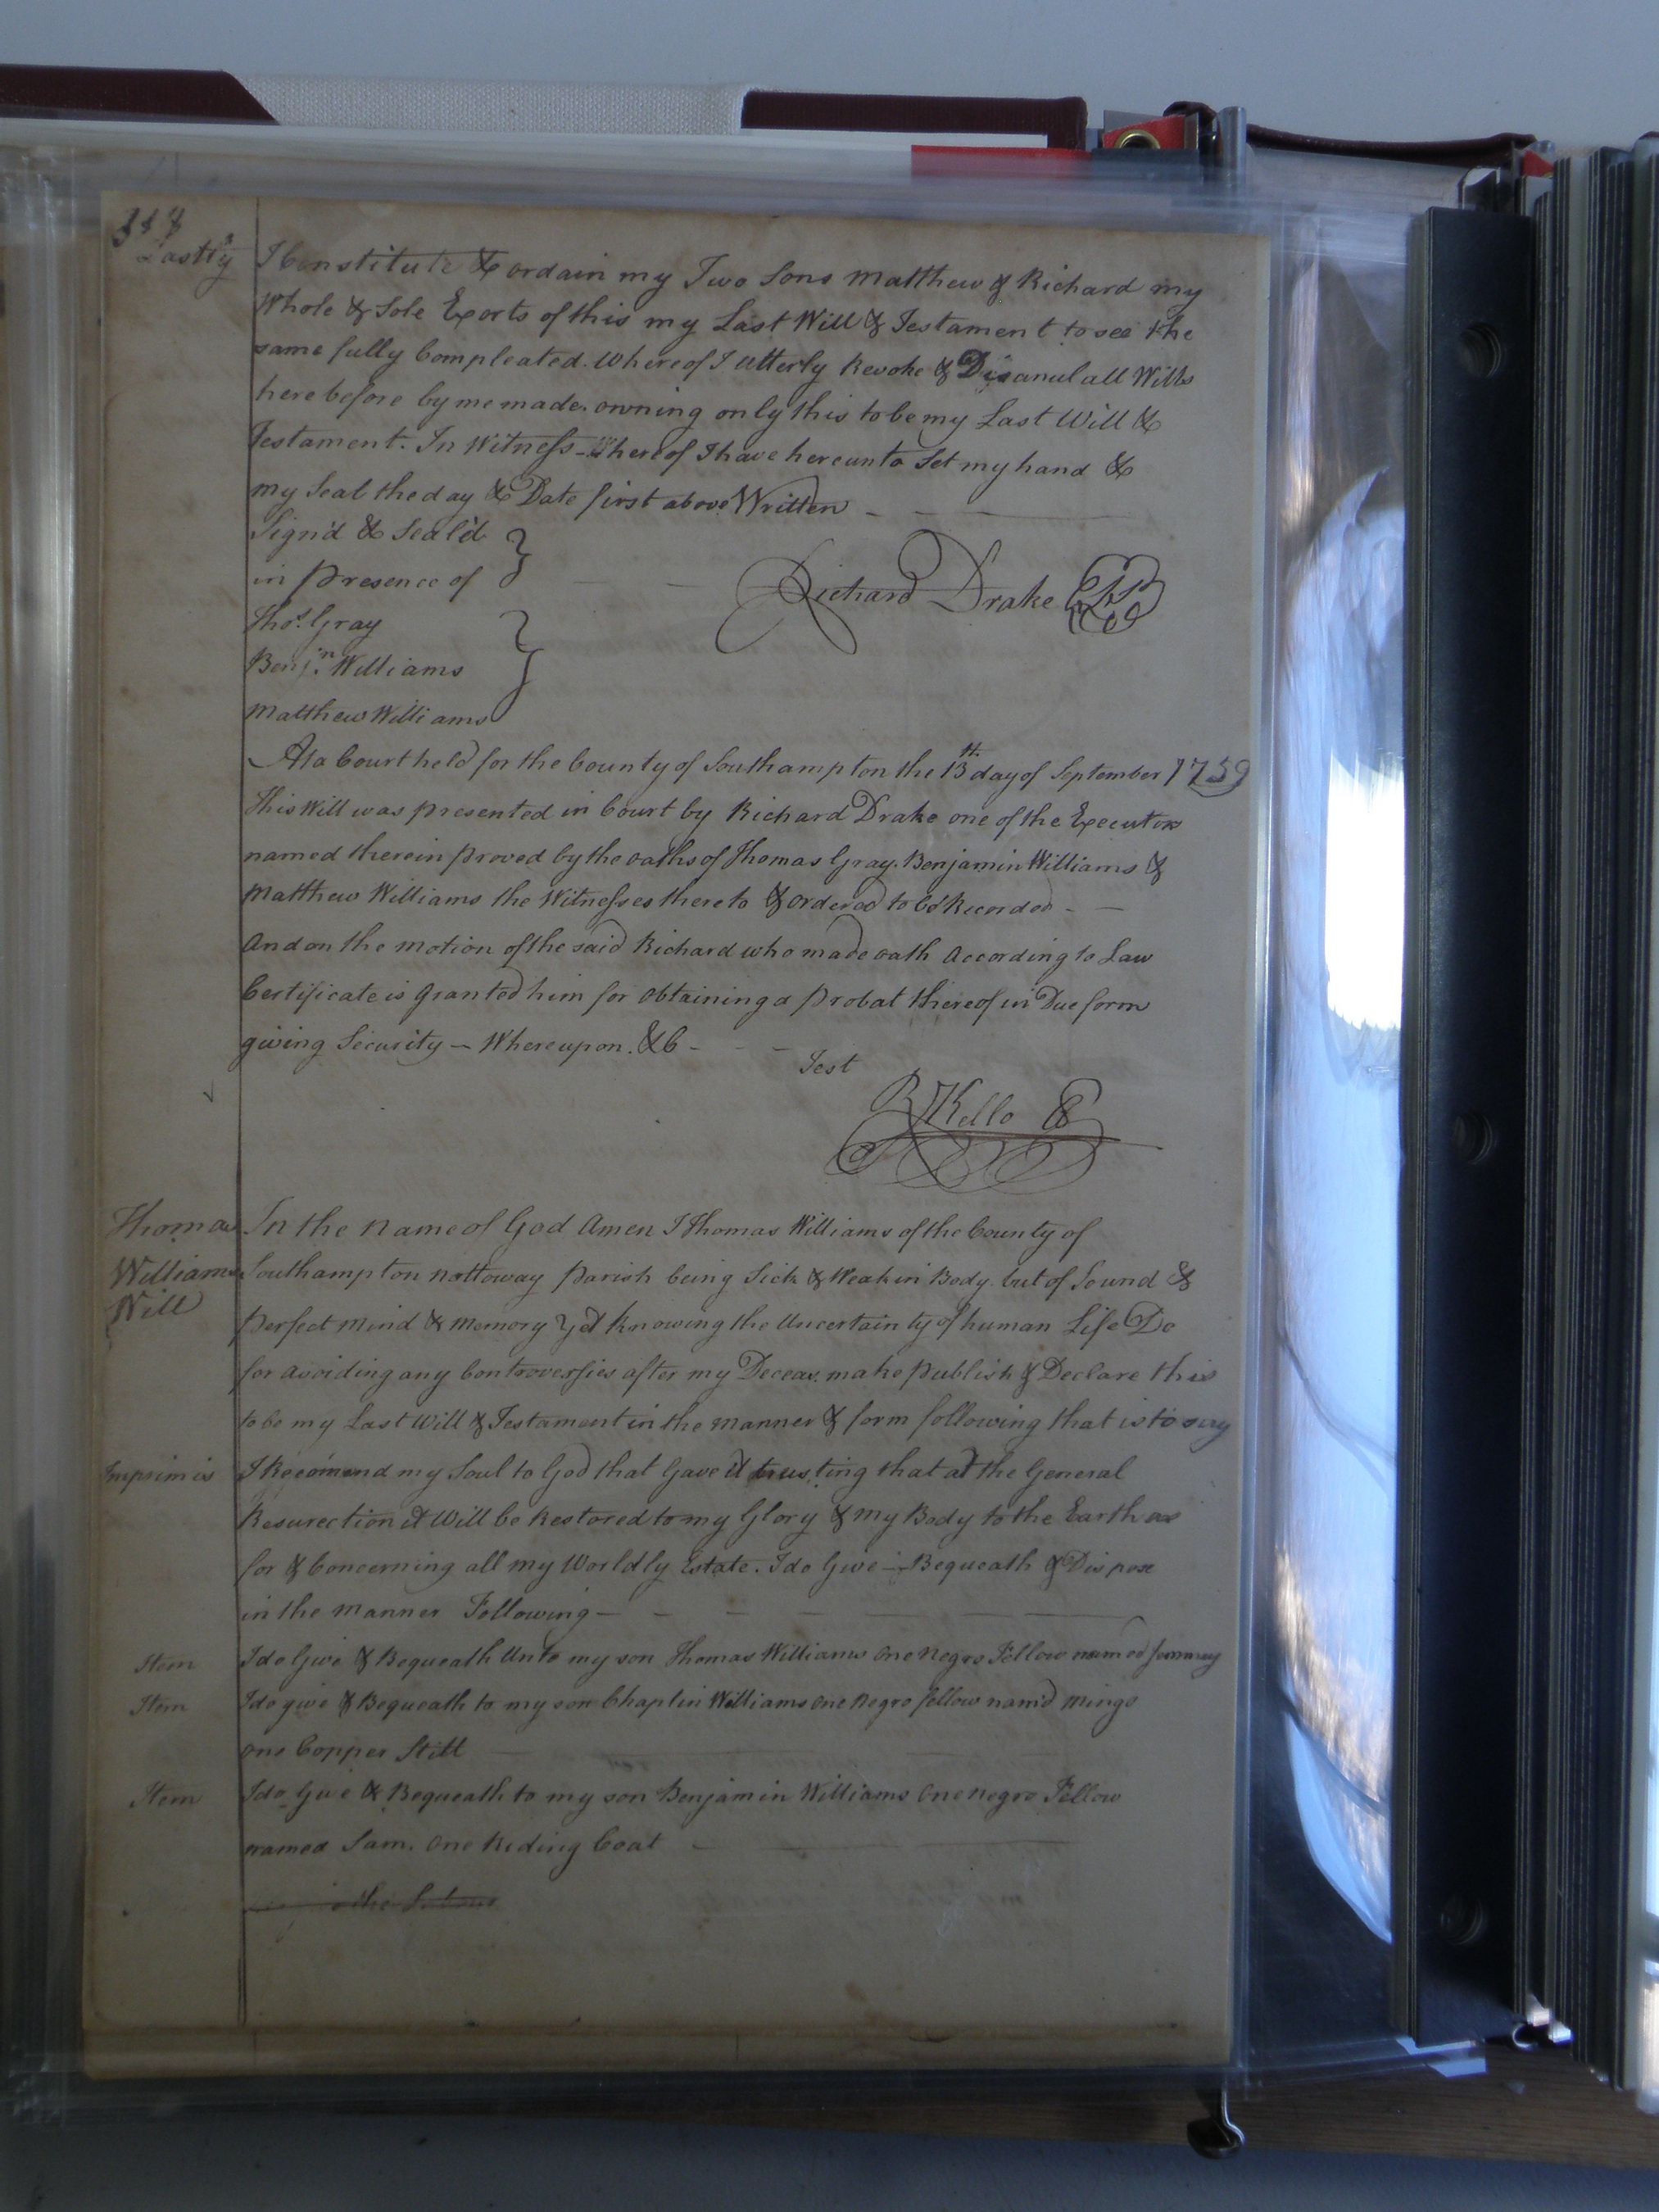 Lastly I Constitute & ordain my Two Sons Matthew & Richard my
Whole & Sole Exorts of this my Last Will & Testament to see the
same fully Compleated. Whereof I utterly Revoke & Disanul all Wills
here before by me made. owning only this to be my Last Will &
Testament. In Witness Whereof I have hereunto Set my hand &
my Seal the day & Date first above Written
Sign'd & Seal'd
in presence of
Richard Drake
Thos. Gray
Benjn. Williams
Matthew Williams
At a Court held for the County of Southampton the 13th day of September 1759
This Will was presented in Court by Richard Drake one of the Executors
named therein proved by the oaths of Thomas Gray. Benjamin Williams &
Matthew Williams the Witnesses thereto & ordered to be Recorded
And on the motion of the said Richard who made oath According to Law
Certificate is Granted him for obtaining a Probat thereof in Due form
giving Security — Whereupon. &C
Test
R Kello
Thomas In the Name of God Amen I Thomas Williams of the County of
Williams Southampton nottoway Parish being Sick & Weak in Body. but of Sound &
Will perfect mind & memory Yet knowing the Uncertainty of human Life Do
for avoiding any Controversies after my Deceas. make publish & Declare this
to be my Last Will & Testament in the manner & form following that is to say
Imprimis I Recomend my Soul to God that Gave it trusting that at the General
Resurection it Will be Restored to my Glory & my Body to the Earth as
for & Concerning all my Worldly Estate. I do Give Bequeath & Dispose
in the manner Following
Item I do Give & Bequeath Unto my son Thomas Williams One Negro Fellow named Jemmey
Item I do give & Bequeath to my son Chaplin Williams one Negro fellow nam'd Mingo
one Copper Still
Item I do Give & Bequeath to my son Benjamin Williams One negro Fellow
named Sam. One Riding Coat